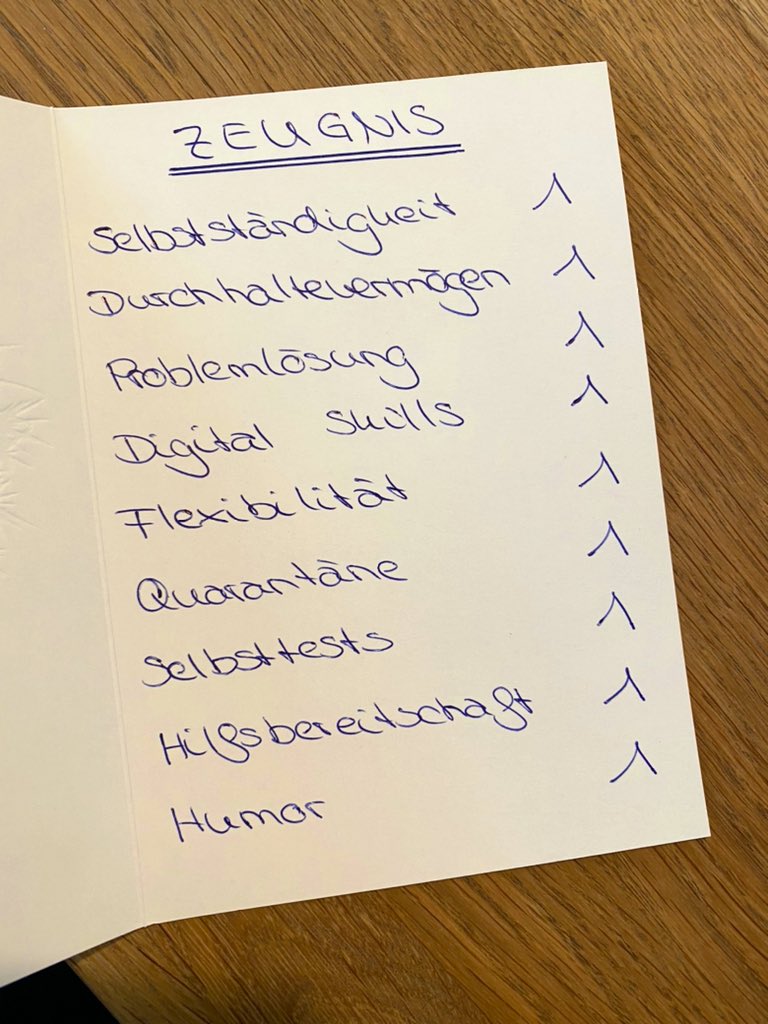 ZEUGNIS
Selbstständigkeit 1
Durchhaltevermögen 1
Problemlösung 1
Digital Skills 1
Flexibilität 1
Quarantäne 1
Selbsttests 1
Hilfsbereitschaft 1
Humor 1